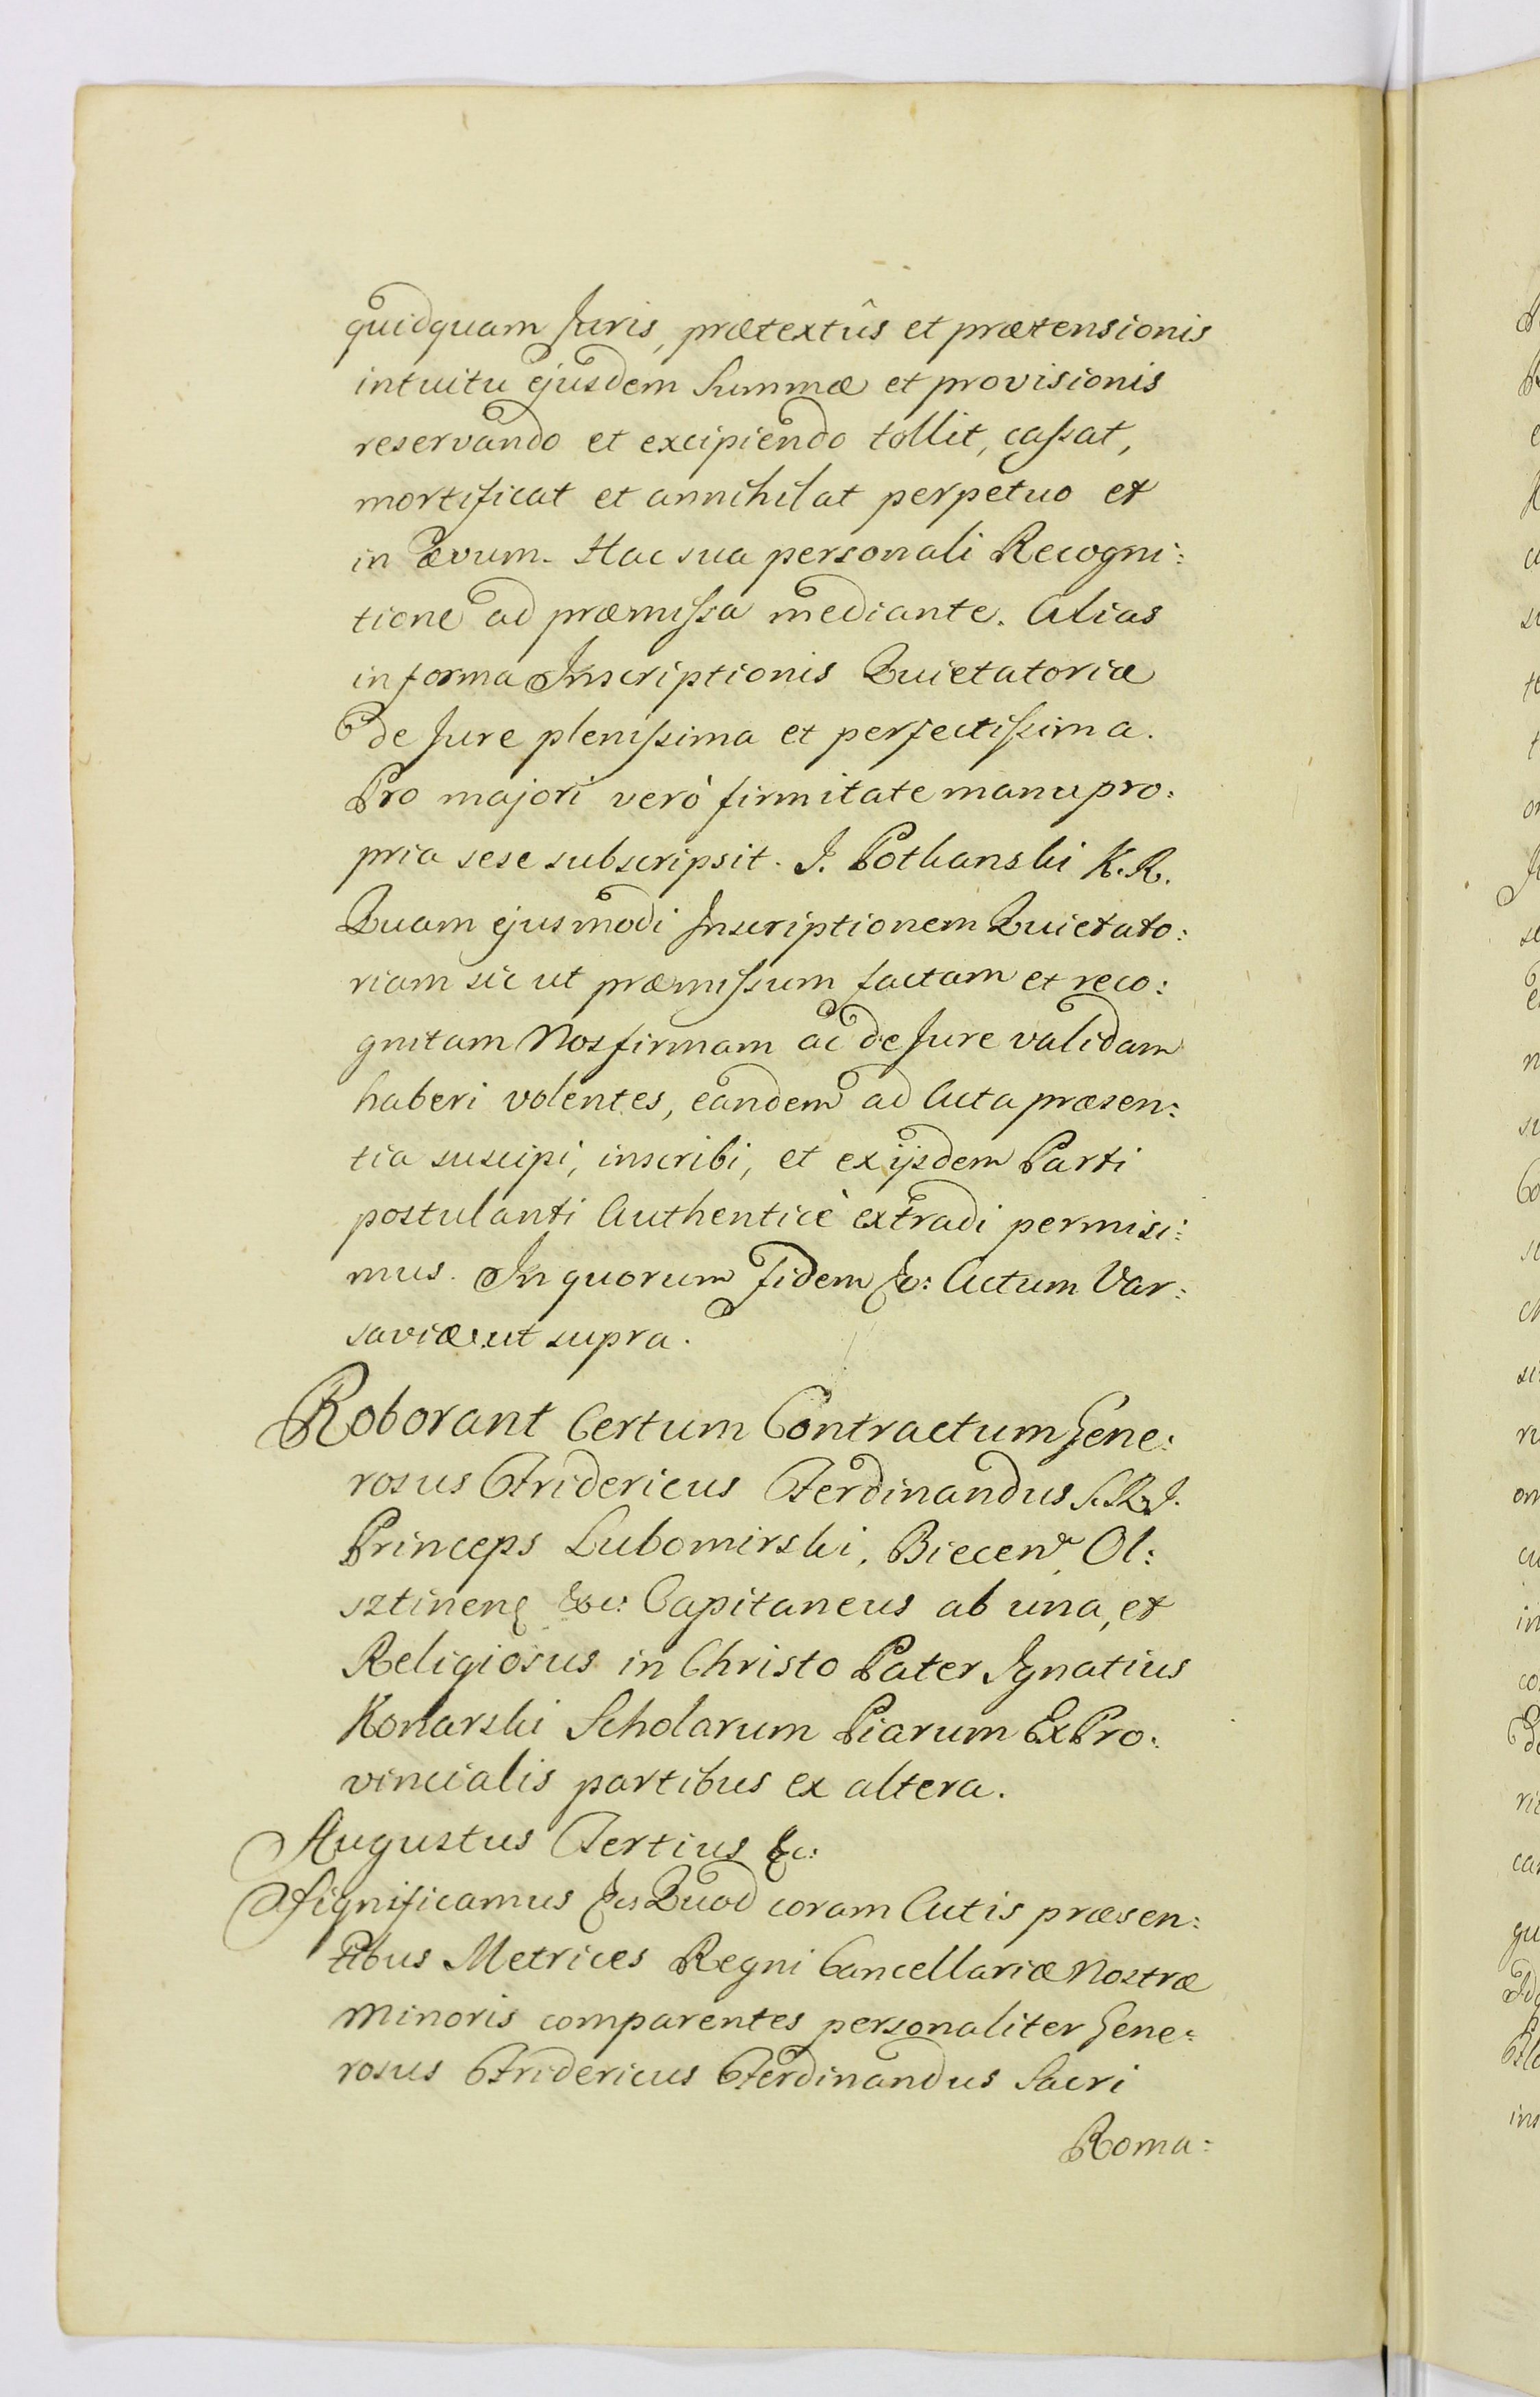 quidquam Juris, prætextûs et prætensionis
intuitu ejusdem Summæ et provisionis
reservando et excipiendo tollit, caſsat,
mortificat et annihilat perpetuo et
in ævum. Hac sua personali Recogni:
tione ad præmiſsa mediante. Alias
in forma Inscriptionis Quietatoriæ
de Jure pleniſsima et perfectiſsima.
Pro majori verò firmitate manu pro:
pria sese subscripsit. J. Pothanski K. R.
Quam ejusmodi Inscriptionem Quietato:
riam sic ut præmiſsum factam et reco:
gnitam Nos firmam ac de Jure validam
haberi volentes, eandem ad Acta præsen:
tia suscipi, inscribi, et ex ijsdem Parti
postulanti Authenticè extradi permisi:
mus. In quorum fidem &c: Actum Var:
saviæ ut supra.
Roborant Certum Contractum Gene:
rosus Fridericus Ferdinandus S. R. J.
Princeps Lubomirski, Biecen, Ol:
sztinen &c: Capitaneus ab una, et
Religiosus in Christo Pater Ignatius
Konarski Scholarum Piarum ExPro:
vincialis partibus ex altera.
Augustus Tertius &c:
Significamus &c Quod coram Actis præsen:
tibus Metrices Regni Cancellariæ Nostræ
Minoris comparentes personaliter Gene:
rosus Fridericus Ferdinandus Sacri
Roma: